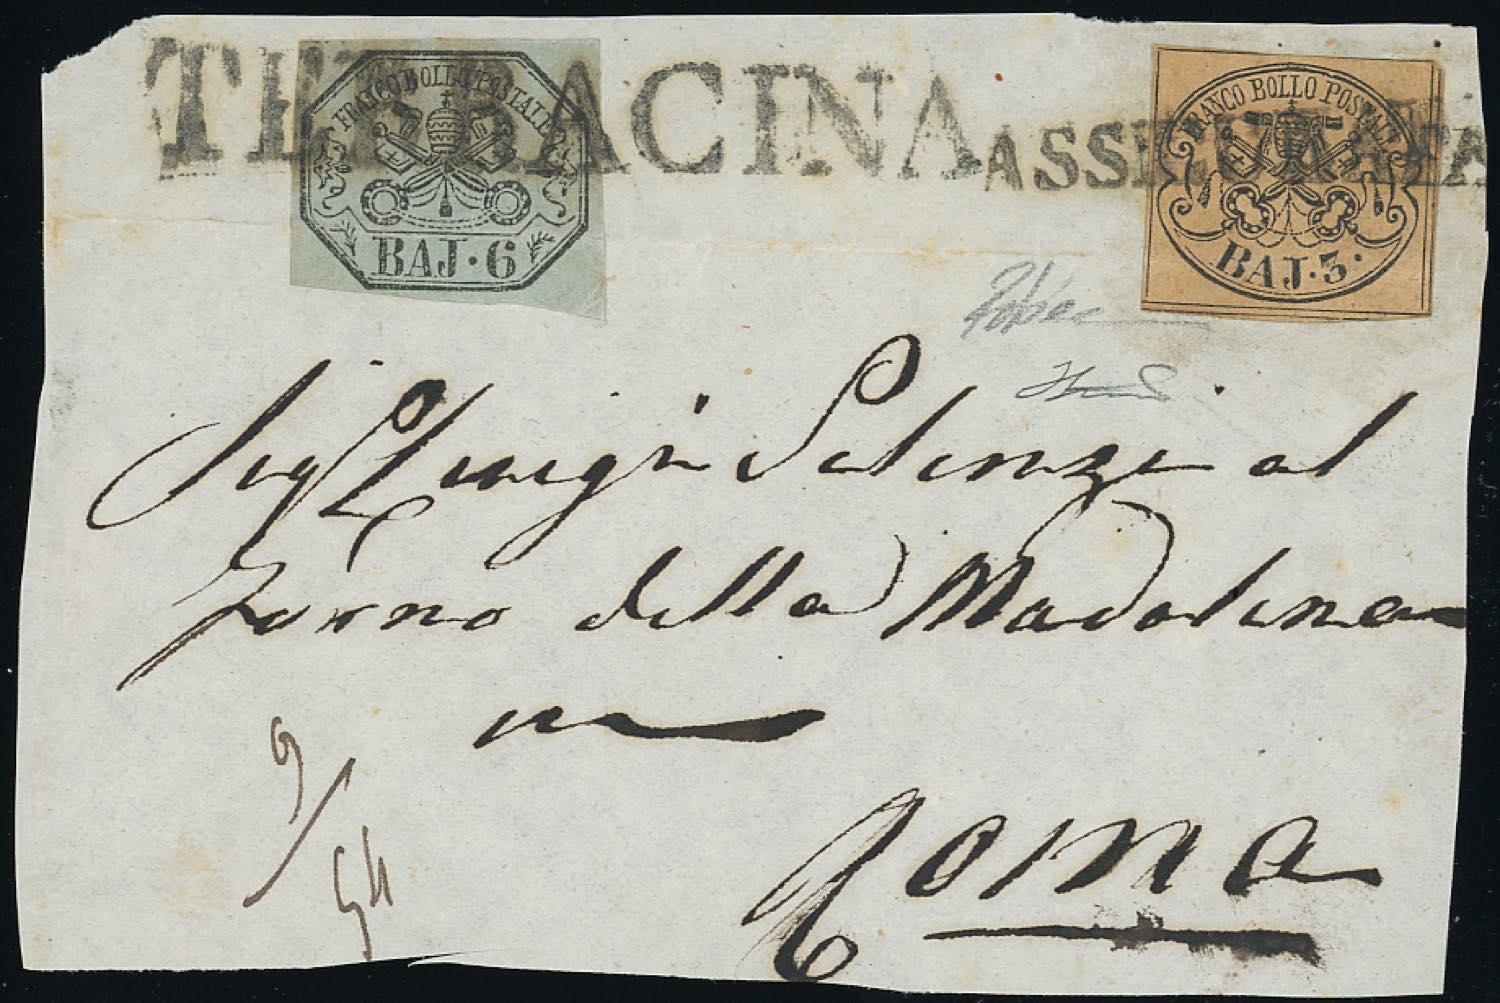 TERRACINA ASSICURATA
FRANCO BOLLO POSTALE
BAJ·6
FRANCO BOLLO POSTALE
BAJ·3·
Sig Luigi Valenzi al
Forno della Madalena
in
Roma
9/54